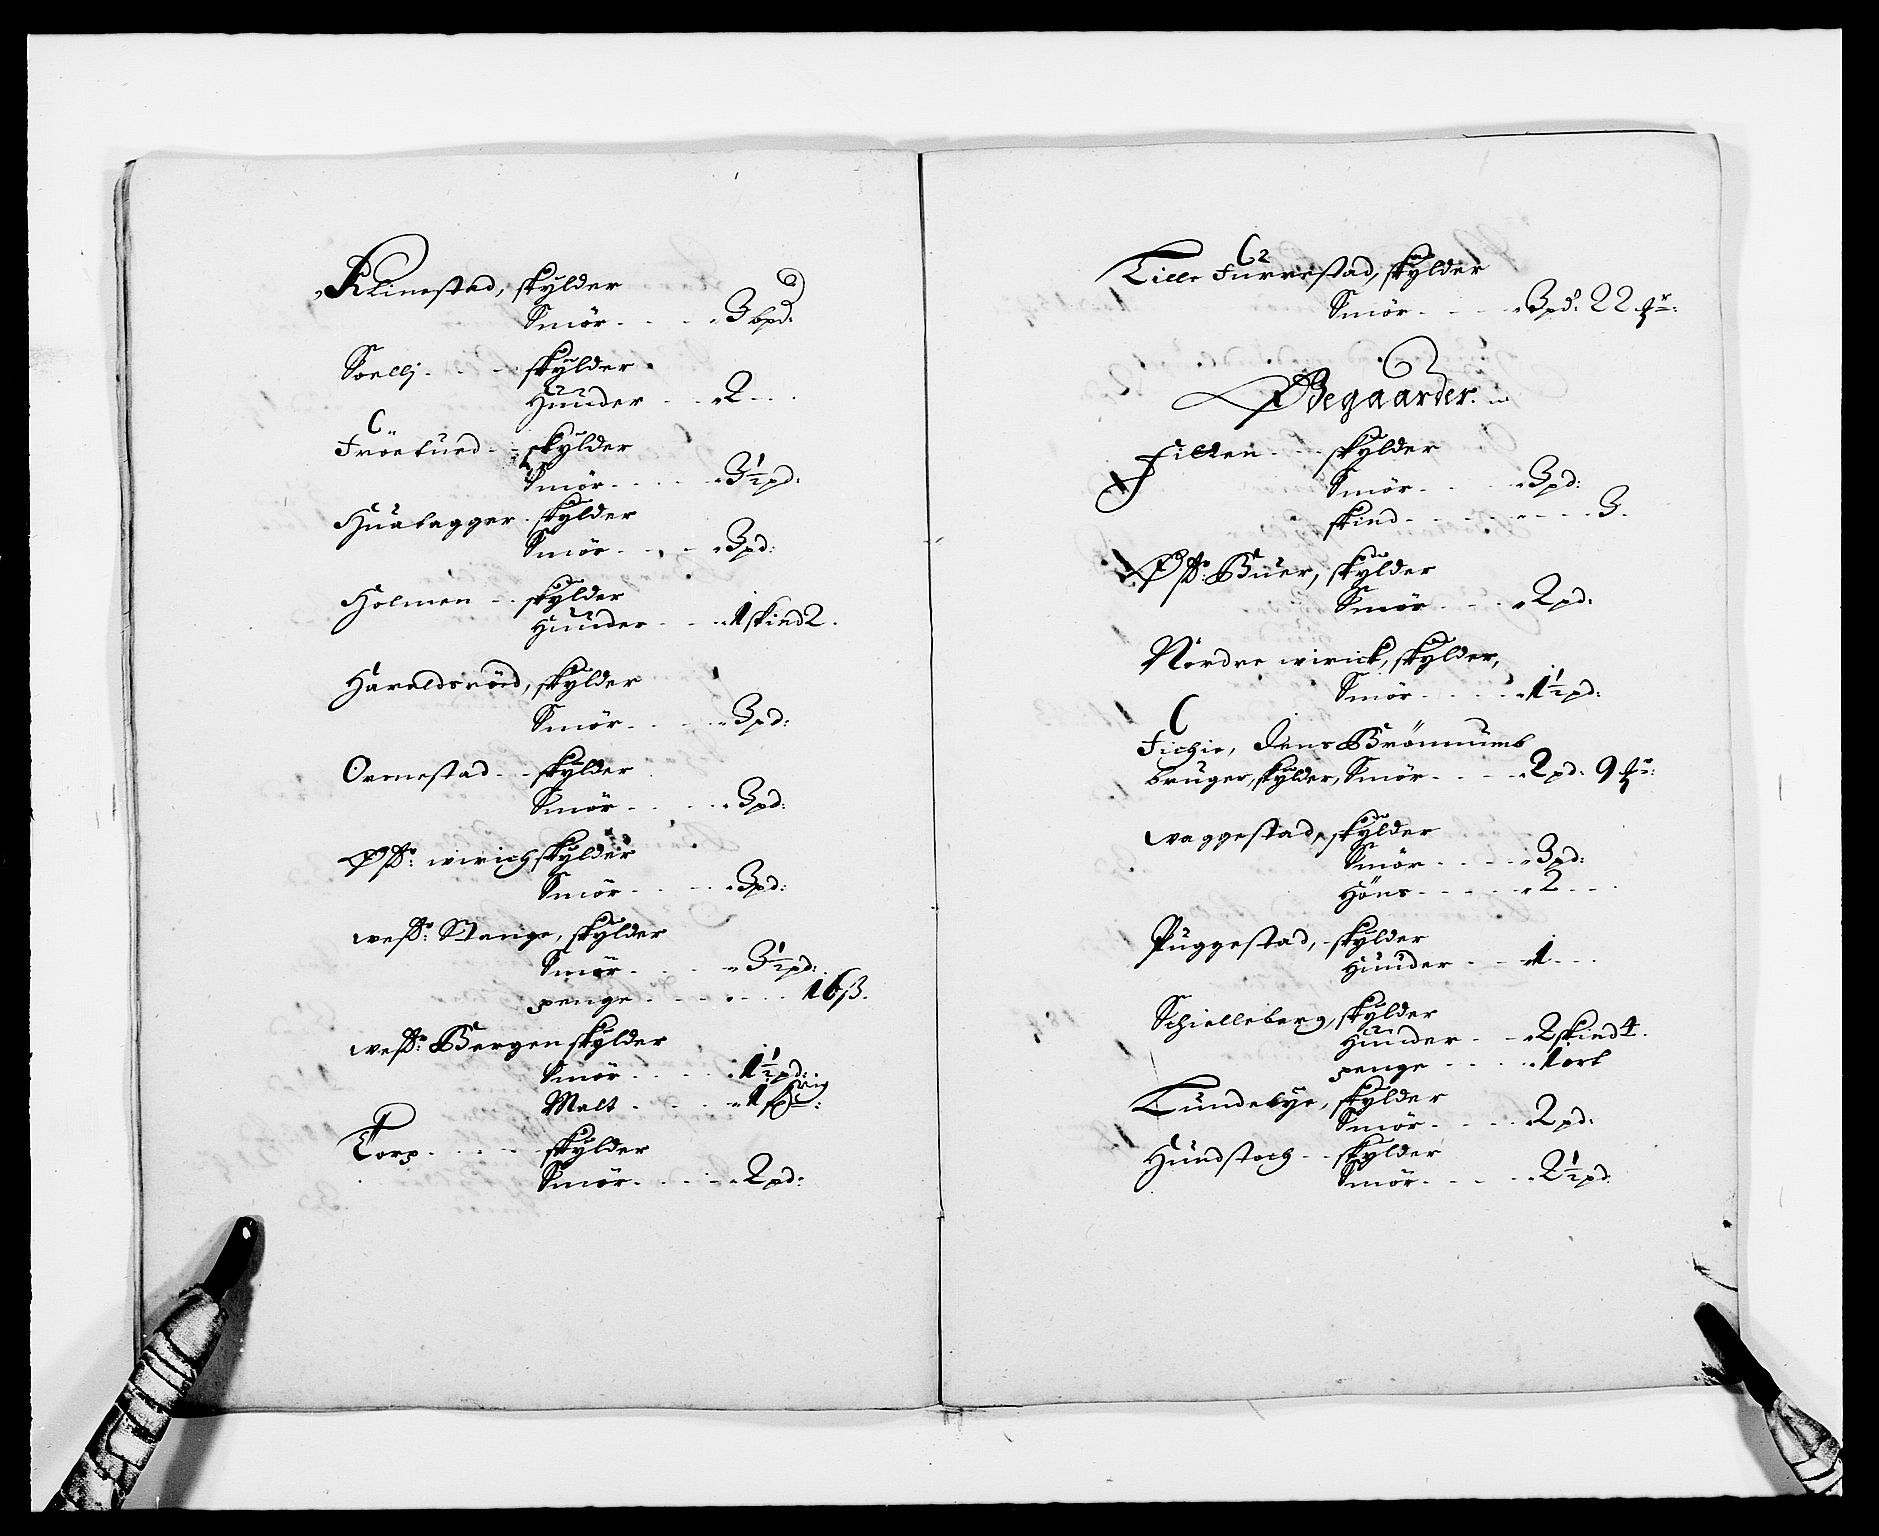 Klinestad, skylder
Smör - - - 3 bpd:
Soelli - - - skylder
Hunder - - 2 - -
Fröetued - - skylder
Smör - - - - 3½ pd:
Huabagger - skylder
Smör - - - 3 pd:
Holmen - - skylder
Hunder - - 1 skind 2.
Haraldsröd, skylder
Smör - - - 3 pd:
Ormestad - - skylder
Smör - - - 3 pd:
Øst: wirich skylder
Smör - - - 3 pd:
west: Stange, skylder
Smör - - - 3½ pd:
penge - - - - - 16 β.
west: Bergen skylder
Smör - - - - 1½ pd:
Malt - - - - 1
Torp - - - - skylder
Smör - - - - 2 pd:
Lille Furrestad, skylder
Smör - - - 3 pd: 22
Ødegaarder
Filken - - skylder
Smör - - - 3 pd:
skind - - - - - - 3.
Øst: Buer, skylder
Smör - - - 2 pd:
Nordre wirich, skylder,
Smör - - - - 1½ pd:
Fichie, Jens Brönnums
bruger, skylder, Smör - - - 2 pd: 9
waggestad, skylder
Smör - - - - 3 pd:
Höns - - - - 2 - -
Puggestad, skylder
Hunder - - 1 - -
Schielleberg, skylder
Hunder - - 2 skind 4.
penge - - - - 1 ort
Lundebye, skylder
Smör - - - - 2 pd:
Hundstoch - - skylder
Smör - - - - 2½ pd.